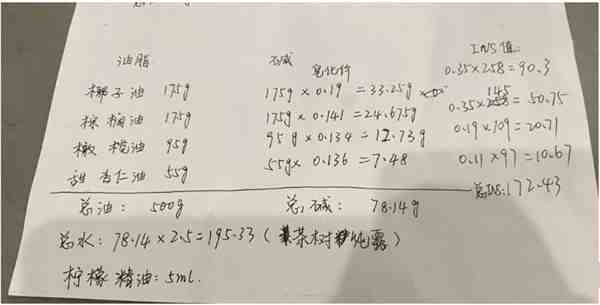 油脂 石碱 INS值
皂化价 0.35×258=90.3
椰子油 175g 175g×0.19=33.25g
棕榈油 175g 175g×0.141=24.675g 0.35×145=50.75
橄榄油 95g 95g×0.134=12.73g 0.19×109=20.71
甜杏仁油 55g 55g×0.136=7.48 0.11×97=10.67
总油: 500g 总碱: 78.14g 总INS:172.43
总水: 78.14×2.5=195.33(茶树纯露)
柠檬精油: 5ml.